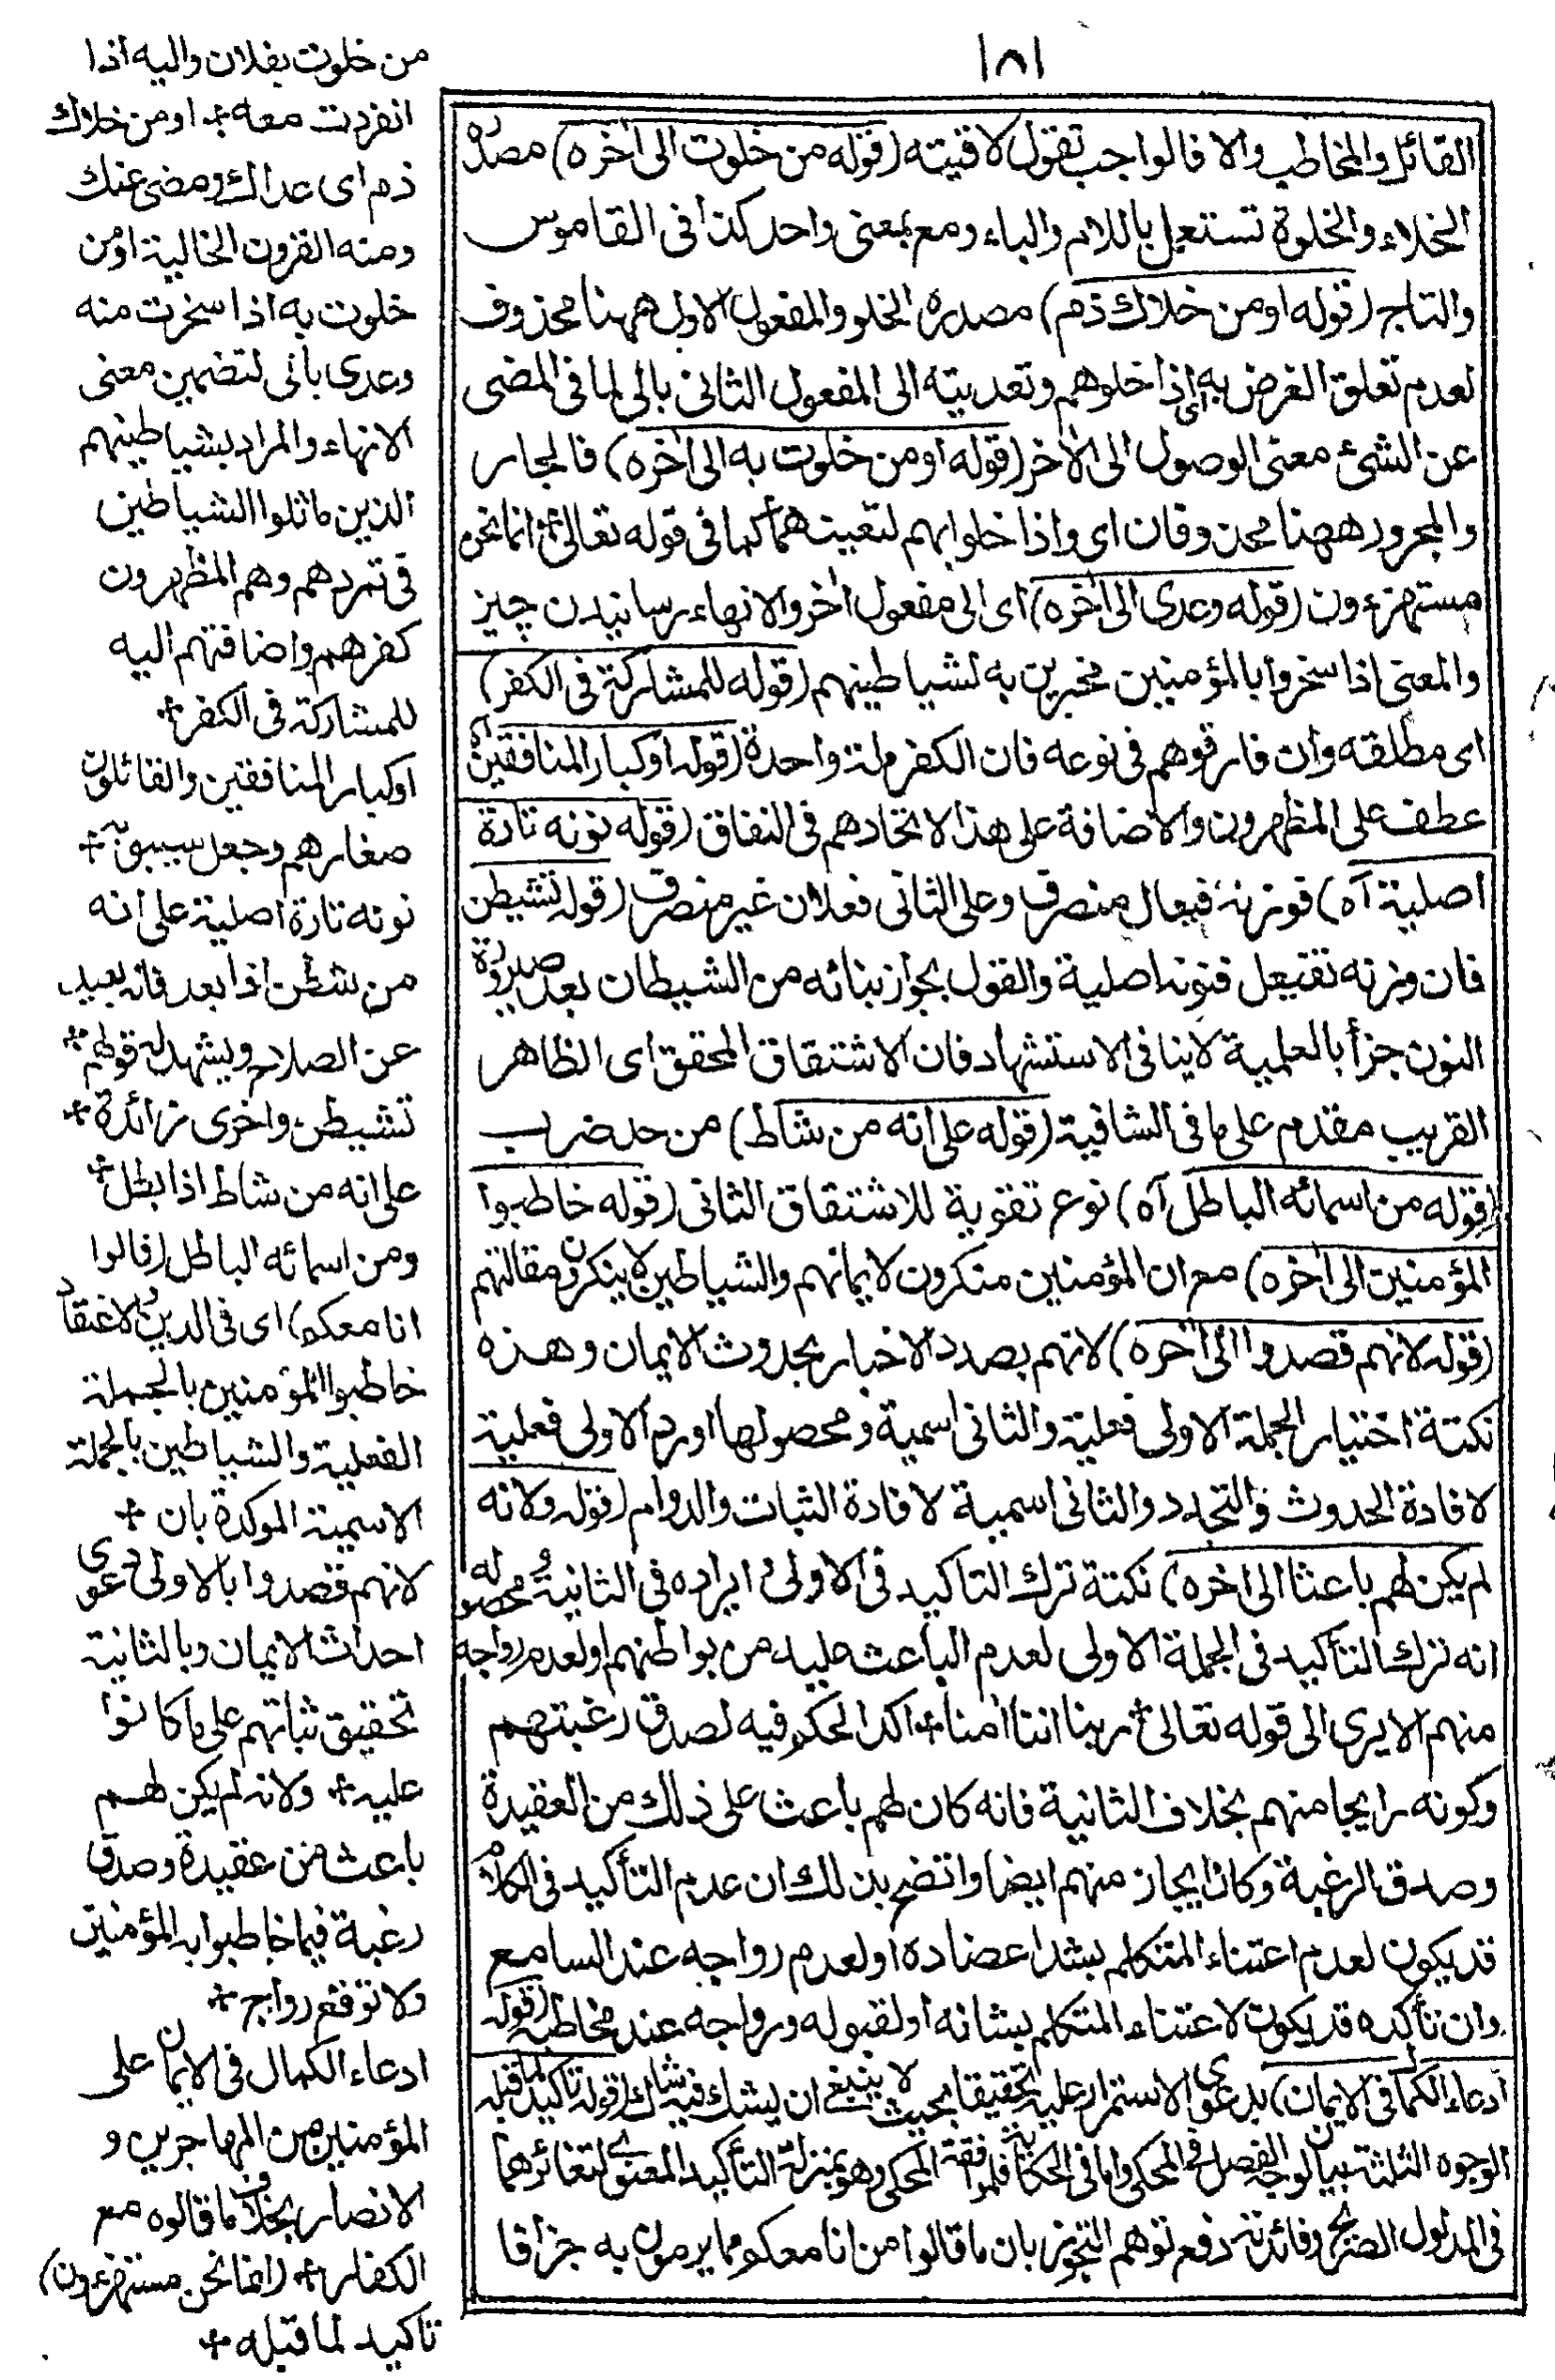 ١٨١
القائل والمخاطب والا فالواجب تقول لاقيته (قوله من خلوت الى اخره) مصدره
الخلاء والخلوة تستعمل باللام والباء ومع بمعنى واحد كذا فى القاموس
والتاج (قوله اومن خلاك ذم) مصدره الخلو والمفعول الاول ههنا محذوف
لعدم تعلق الغرض به اى اذا خلوهم وتعديته الى المفعول الثانى بالى لما فى المضى
عن الشئ معنى الوصول الى الاخر (قوله اومن خلوت به الى اخره) فالجار
والمجرور ههنا محذوفان اى واذا خلوا بهم لتعينهما كما فى قوله تعالى انما نحن
مستهزءون (قوله وعدى الى اخره) اى الى مفعول اخر والانهاء رسانيدن چيز
والمعنى اذا سخروا بالمؤمنين مخبرين به لشياطينهم (قوله للمشاركة فى الكفر)
اى مطلقه وان فارقوهم فى نوعه فان الكفر ملة واحدة (قوله اوكبار المنافقين آه
عطف على المظهرون والاضافة على هذا الاتحادهم فى النفاق (قوله نونه تارة
اصلية آه) فوزنه فيعال منصرف وعلى الثانى فعلان غير منصرف (قوله تشيطن
فان وزنه تفيعل فنونه اصلية والقول بجواز بنائه من الشيطان بعد صيرورة
النون جزأ بالعلمية لاينافى الاستشهاد فان الاشتقاق المحقق اى الظاهر
القريب مقدم على ما فى الشافية (قوله على انه من شاط) من حد ضرب
(قوله من اسمائه الباطل آه) نوع تقوية للاشتقاق الثانى (قوله خاطبوا
المؤمنين الى اخره) مع ان المؤمنين منكرون لايمانهم والشياطين لاينكرون مقالتهم
(قوله لانهم قصدوا الى اخره) لانهم بصدد الاخبار بحدوث الايمان وهذه
نكتة اختيار الجملة الاولى فعلية والثانى اسمية ومحصولها اورد الاولى فعلية
لافادة الحدوث والتجدد والثانى اسمية لافادة الثبات والدوام (قوله ولانه
لم يكن لهم باعث الى اخره) نكتة ترك التاكيد فى الاولى وايراده فى الثانية ومحصوله
انه ترك التأكيد فى الجملة الاولى لعدم الباعث عليه من بواطنهم اولعدم رواجه
منهم الايرى الى قوله تعالى ربنا اننا امنا اكد الحكم فيه لصدق رغبتهم
وكونه رايجا منهم بخلاف الثانية فانه كان لهم باعث على ذلك من العقيدة
وصدق الرغبة وكان رايجا منهم ايضا واتضح بذلك ان عدم التأكيد فى الكلام
قد يكون لعدم اعتناء المتكلم اولعدم رواجه عند السامع
وان تأكده قد يكون لاعتناء المتكلم بشانه اولقبوله ورواجه عند مخاطبه (قوله
ادعاء الكمال فى الايمان) بدعوى الاستمرار عليه تحقيقا بحيث لاينبغى ان يشك فيه شاك (قوله تاكيد لما قبله
الوجوه الثلثة بيان لوجه الفصل فى المحكى واما فى الحكاية فلموافقة المحكى وهو بمنزلة التأكيد المعنوى لتغائرهما
فى المدلول الصريح وفائدته دفع توهم التجوز بان ما قالوا من انا معكم مما يرمون به جزافا
من خلوت بفلان واليه اذا
انفردت معه اومن خلاك
ذم اى عداك ومضى عنك
ومنه القرون الخالية اومن
خلوت به اذا سخرت منه
وعدى بالى لتضمين معنى
الانهاء والمراد بشياطينهم
الذين ماثلوا الشياطين
فى تمردهم وهم المظهرون
كفرهم واضافتهم اليه
للمشاركة فى الكفر
اوكبار المنافقين والقائلون
صغارهم وجعل سيبويه
نونه تارة اصلية على انه
من شطن اذا بعد فانه بعيد
عن الصلاح ويشهد له قولهم
تشيطن واخرى زائدة
على انه من شاط اذا بطل
ومن اسمائه الباطل (قالوا
انا معكم) اى فى الدين والاعتقاد
خاطبوا المؤمنين بالجملة
الفعلية والشياطين بالجملة
الاسمية الموكدة بان
لانهم قصدوا بالاولى دعوى
احداث الايمان وبالثانية
تحقيق ثباتهم على ما كانوا
عليه ولانه لم يكن لهم
باعث من عقيدة وصدق
رغبة فيما خاطبوا به المؤمنين
ولا توقع رواج
ادعاء الكمال فى الايمان على
المؤمنين من المهاجرين و
الانصار بخلاف ما قالوه مع
الكفار (انما نحن مستهزءون)
تاكيد لما قبله